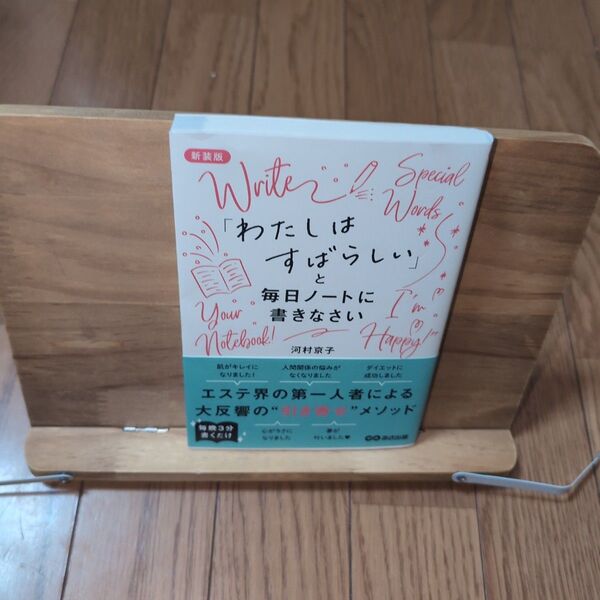 新装版
Write
Special
Words
「わたしは
すばらしい」
と
毎日ノートに
書きなさい
Your
Notebook!
I'm
Happy!
河村京子
肌がキレイに
なりました！
人間関係の悩みが
なくなりました
ダイエットに
成功しました
エステ界の第一人者による
大反響の"引き寄せ"メソッド
毎晩3分
書くだけ
心がラクに
なりました
夢が
叶いました♥